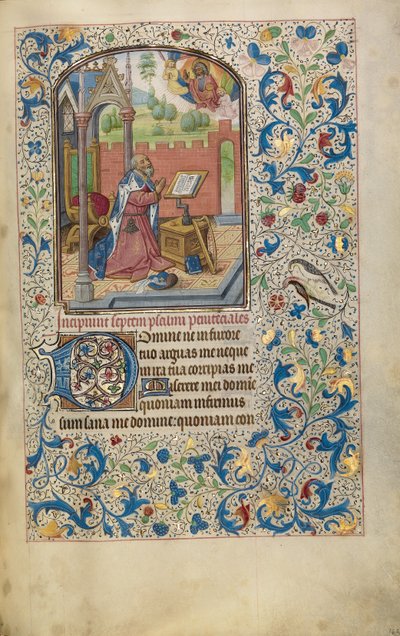 Incipiunt septem psalmi penite{n}ciales
Domine ne in furore
tuo arguas me neque
in ira tua corripias me
Miserere mei domine
quoniam infirmus
sum sana me domine: quoniam con